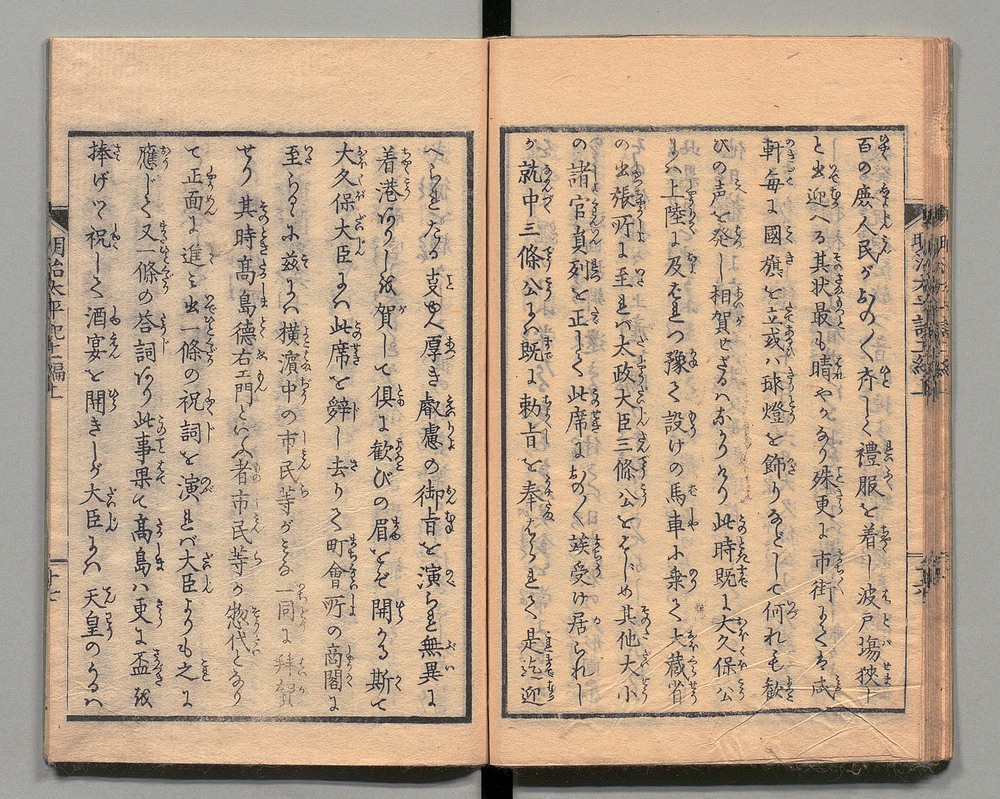 百の庶人民がおの〳〵斉しく禮服を着し波戸場狭し
と出迎へる其状最も晴やかなり殊更に市街にては
軒毎に國旗を立或ハ球燈を飾りなどして何れも歓
びの声を発し相賀せざるハなかりけり此時既に大久保公
にハ上陸に及ばれつ豫て設けの馬車に乗て大蔵省
の出張所に至れバ太政大臣三條公をはじめ其他大小
の諸官員列を正して此席におの〳〵竢受け居られし
が就中三條公にハ既に勅旨を奉はられて是迄迎
へられたる支由厚き叡慮の御旨を演られ無異に
着港ありし越賀して倶に歓びの眉をぞ開かる斯て
大久保大臣にハ此席を辞し去りて町會所の商閣に
至らるゝに茲にハ横濱中の市民等がみな一同に拝賀
せり其時高島徳右エ門といふ者市民等が惣代となり
て正面に進み出一條の祝詞を演れバ大臣よりも之に
應じて又一條の答詞あり此事果て高島ハ更に盃を
捧げつゝ祝して酒宴を開きしが大臣にハ天皇のかゝるハ
明治太平記十二編上